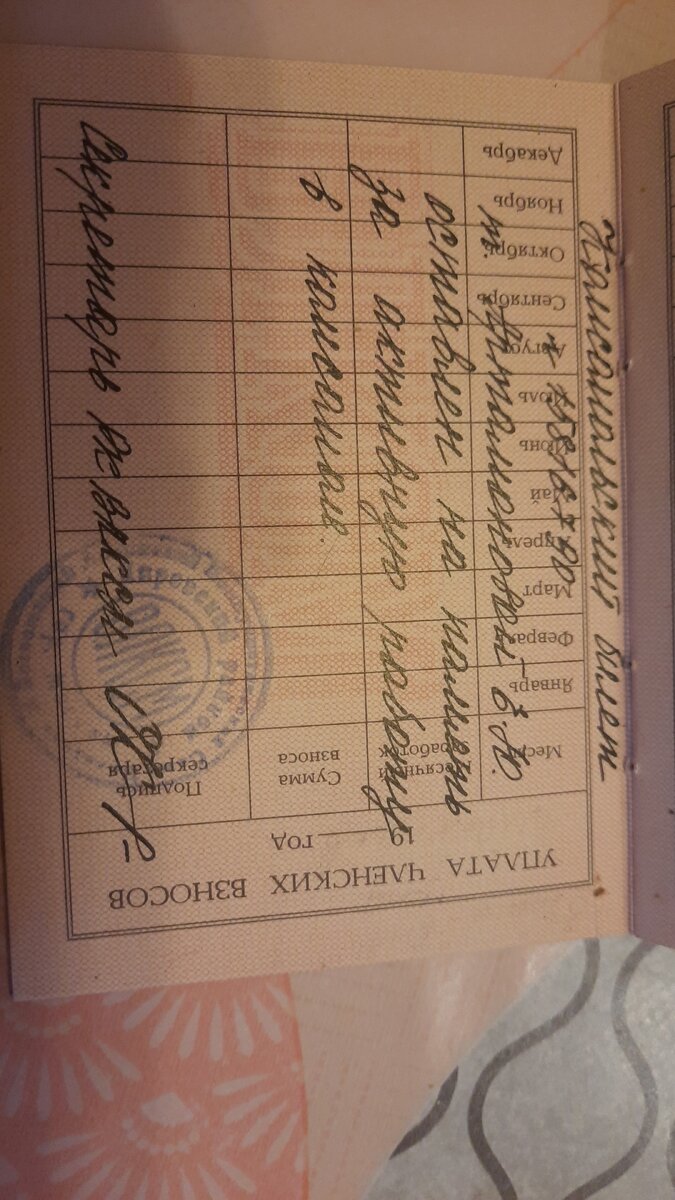 Комсомольский билет
№
т. Е.Ю.
оставлен на память
за активную работу
в комсомоле.
Секретарь РК ВЛКСМ
УПЛАТА ЧЛЕНСКИХ ВЗНОСОВ
19 год
Месяц Месячный заработок Сумма взноса Подпись секретаря
Январь
Февраль
Март
Апрель
Май
Июнь
Июль
Август
Сентябрь
Октябрь
Ноябрь
Декабрь